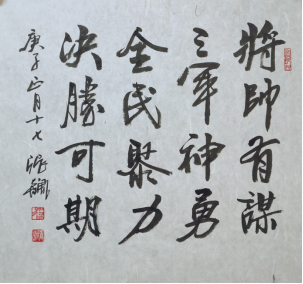 將帥有謀
三軍神勇
全民聚力
決勝可期
庚子正月十七